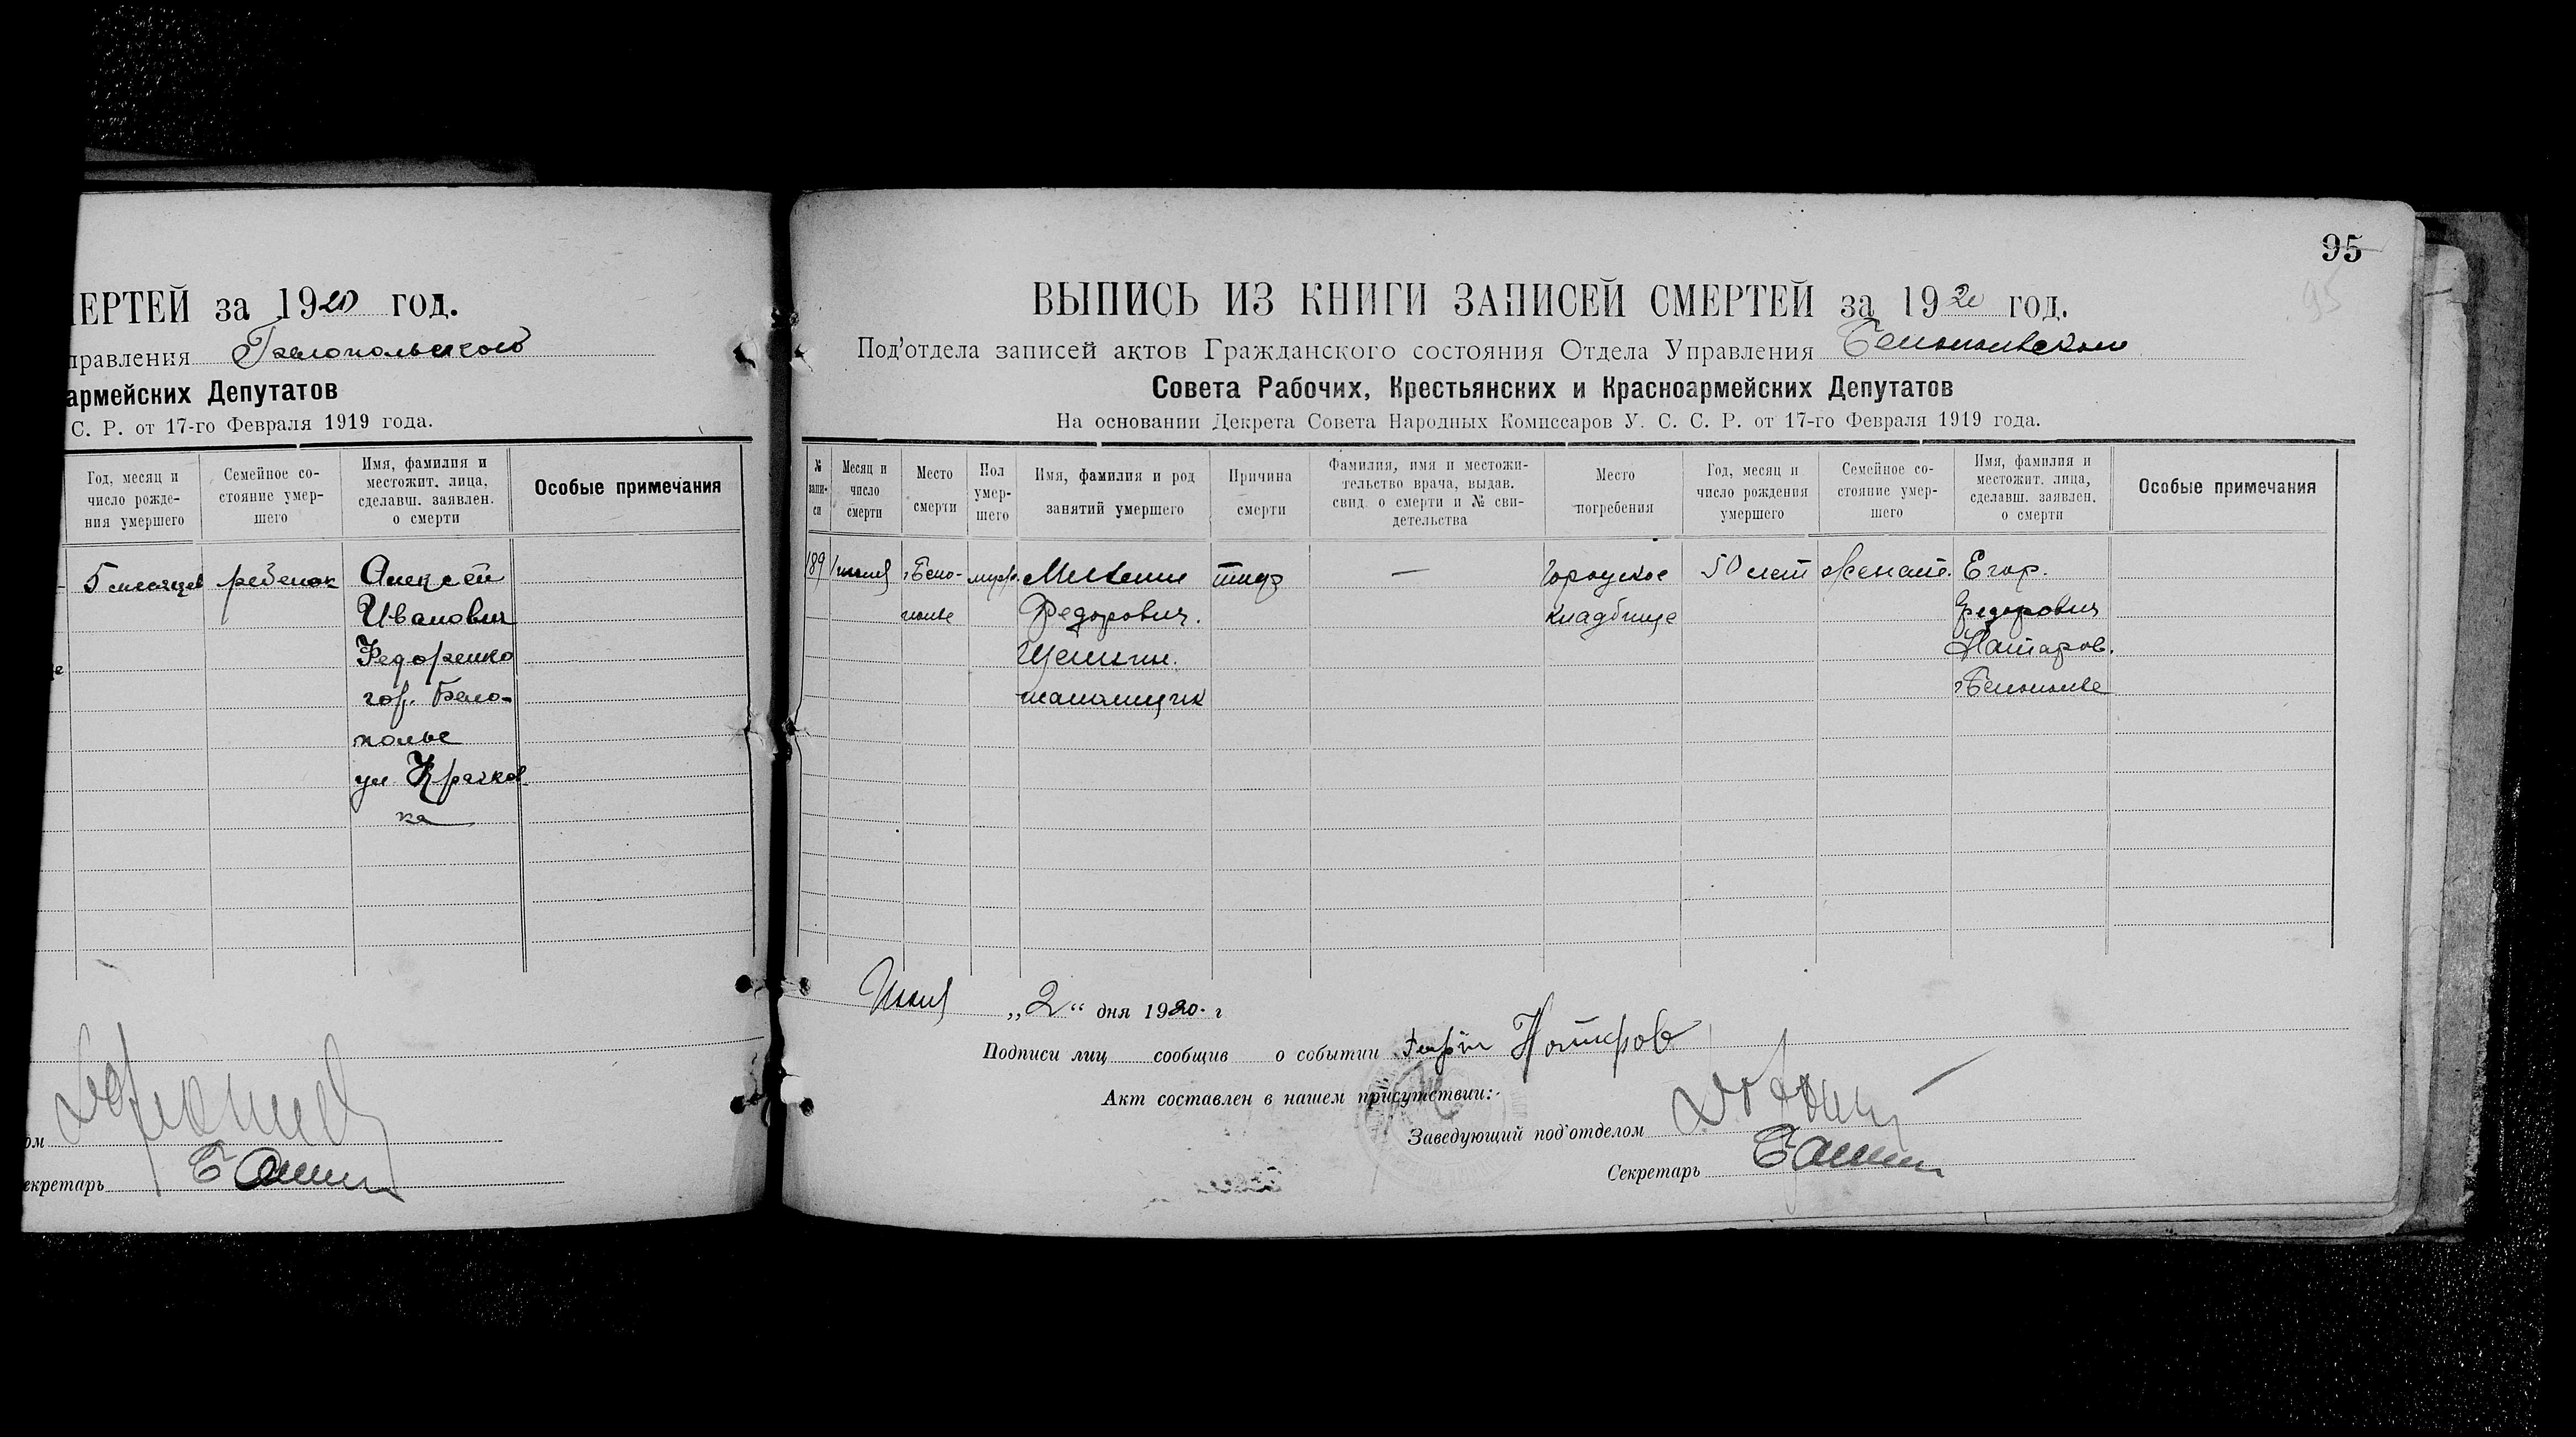 МЕРТЕЙ за 1920 год.
правления Белопольского
армейских Депутатов
С. Р. от 17-го Февраля 1919 года.
Год, месяц и число рожде-ния умершего
Семейное со-стояние умер-шего
Имя, фамилия и местожит. лица, сделавш. заявлен. о смерти
Особые примечания
5 месяцев ребенок Алексей
Иванович
Федоренко
гор. Бело-
полье
ул Крачков
ка
ом
екретарь
95
95
ВЫПИСЬ ИЗ КНИГИ ЗАПИСЕЙ СМЕРТЕЙ за 1920 год.
Под'отдела записей актов Гражданского состояния Отдела Управления Белопольского
Совета Рабочих, Крестьянских и Красноармейских Депутатов
На основании Декрета Совета Народных Комиссаров У. С. С. Р. от 17-го Февраля 1919 года.
№ запи-си
Месяц и число смерти
Место смерти
Пол умер-шего
Имя, фамилия и род занятий умершего
Причина смерти
Фамилия, имя и местожи-тельство врача, выдав. свид. о смерти и № сви-детельства
Место погребения
Год, месяц и число рождения умершего
Семейное со-стояние умер-шего
Имя, фамилия и местожит. лица, сделавш. заявлен. о смерти
Особые примечания
189 г. Бело- муж. тиф — городское 50 лет женат. Егор.
полье Федорович. кладбище Федорович
Натаров.
г. Белополье
„2“ дня 1920. г
Подписи лиц сообщив о событии Натаров
Акт составлен в нашем присутствии:
Заведующий под'отделом
Секретарь